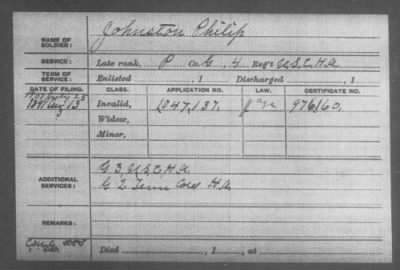 Johnston Philip
NAME OF SOLDIER:
SERVICE: Late rank, P Co. G, 4 Reg't U.S.C.H.A.
TERM OF SERVICE: Enlisted , 1 Discharged , 1
DATE OF FILING. CLASS. APPLICATION NO. LAW. CERTIFICATE NO.
1891 Aug 13 Invalid, 1,047,137. 976160.
Widow,
Minor,
ADDITIONAL SERVICES: G 3, U.S.C.H.A.
G 2 Tenn Cold H.A.
REMARKS:
Died , 1 , at